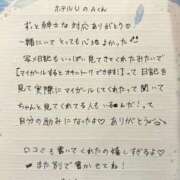 ホテルUのAくん
ずっと紳士な対応ありがとう♡
一緒にいてとっても心地よかった!!
写メ日記もいっぱい見てきてくれたみたいで
【マイガールするとオキニトーク できます!】って日記も
見て実際にマイガールしてくれたって聞いて
ちゃんと見てくれてる人もいるんだ!って
自分の励みになったよ♡ ありがとう
口コミも書いてくれたの嬉しすぎるよ♡
また別で書かせてね!